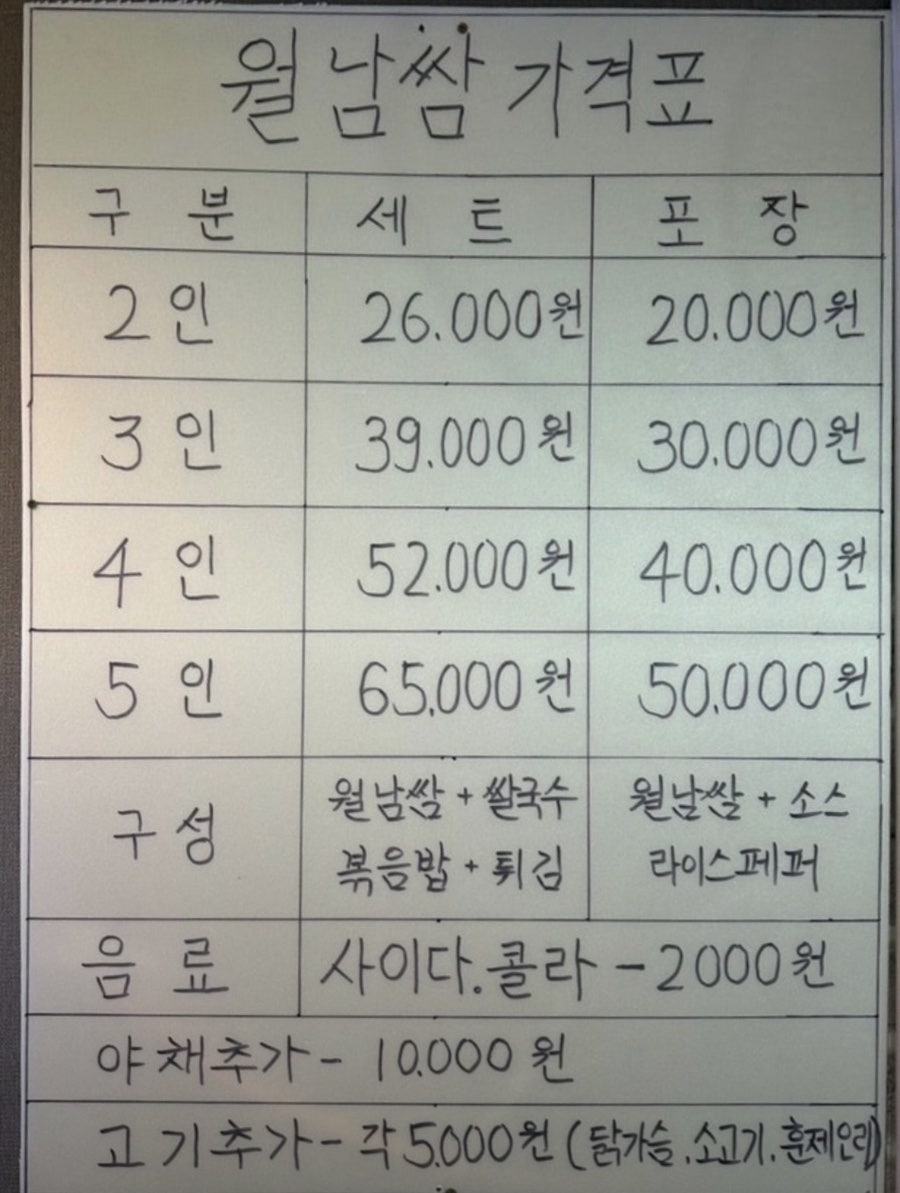 월남쌈 가격표
구 분 세 트 포 장
2인 26.000원 20.000원
3인 39.000원 30.000원
4인 52.000원 40.000원
5인 65.000원 50.000원
구성 월남쌈 + 쌀국수 월남쌀 + 소스
볶음밥 + 튀김 라이스페퍼
음료 사이다.콜라 - 2000원
야채추가 - 10.000원
고기추가 - 각 5.000원 (닭가슬.소고기.훈제오리)